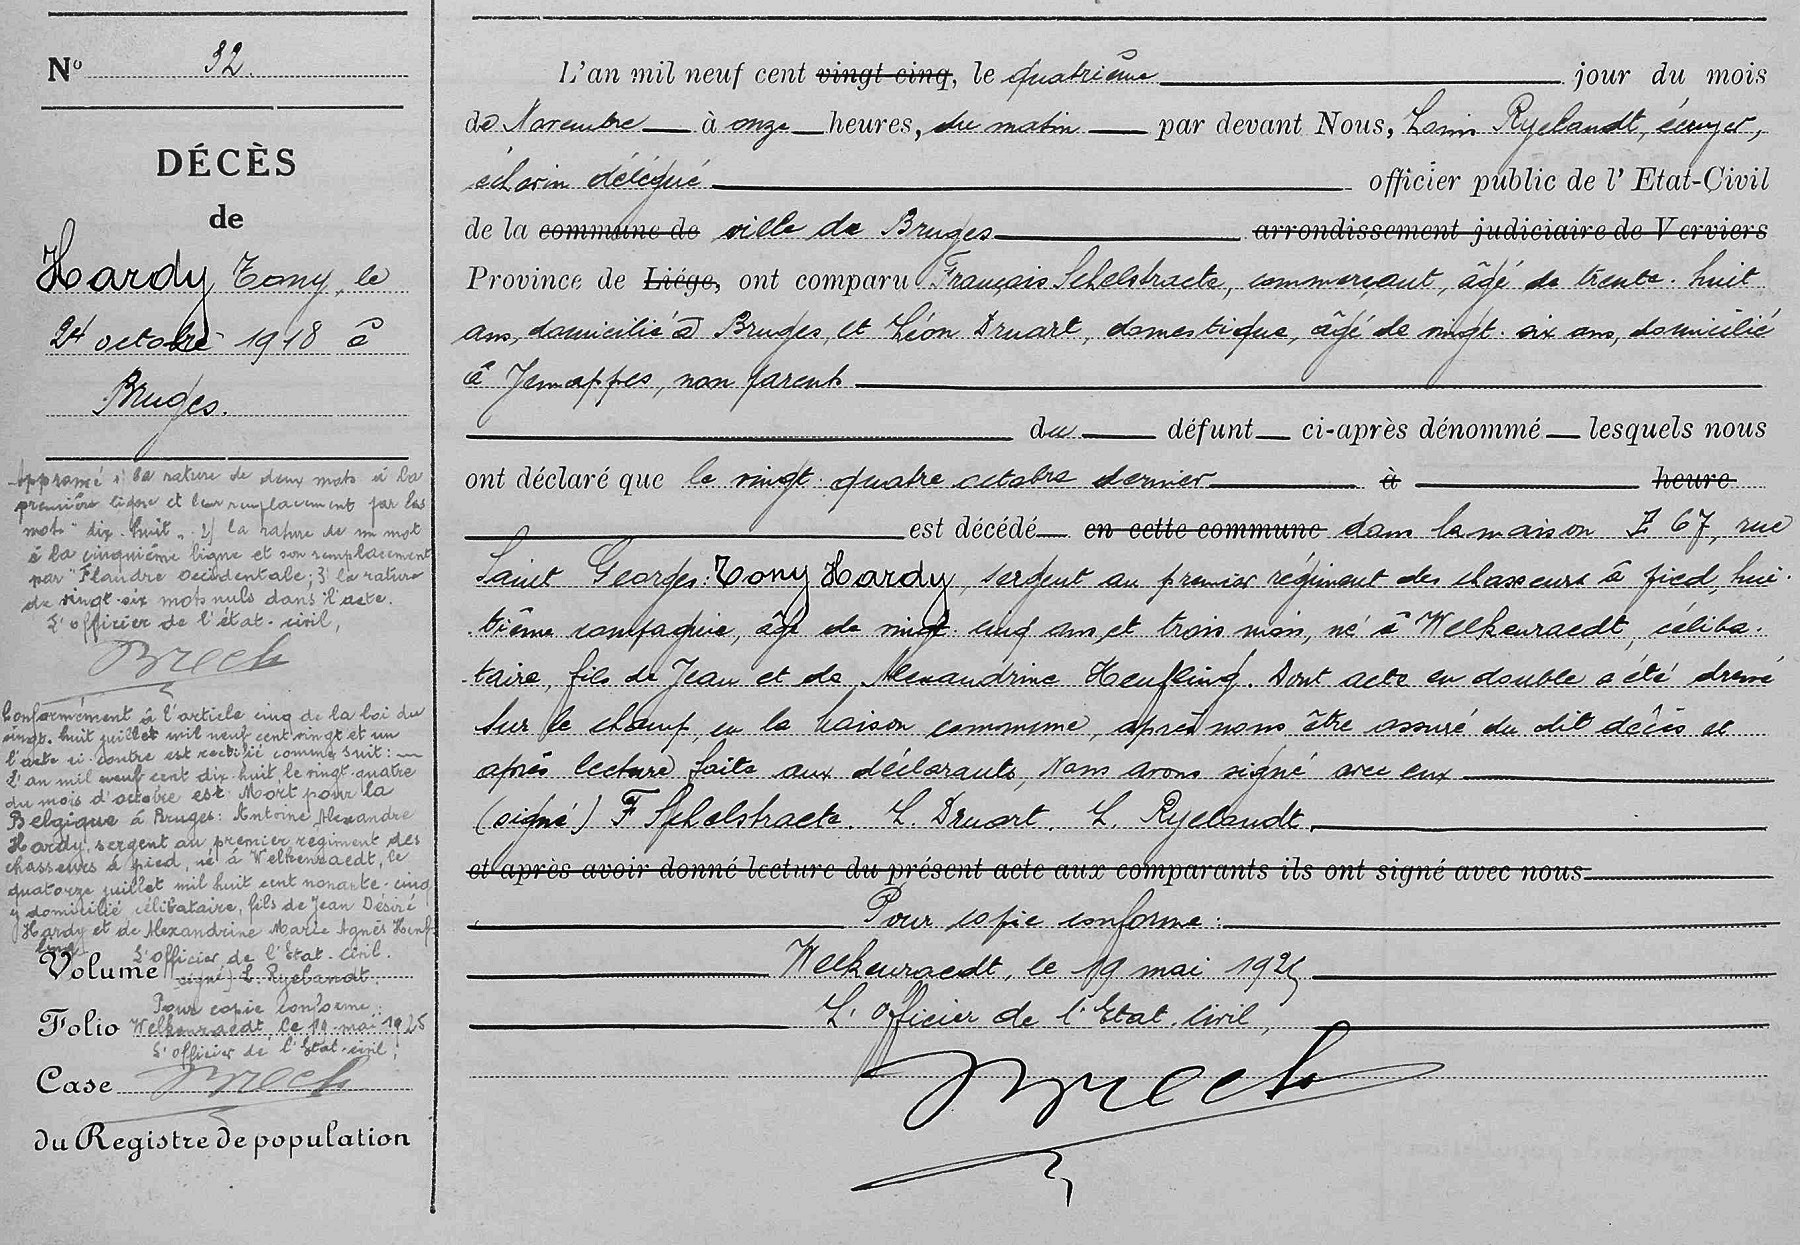 N° 32.
DÉCÈS
de
Hardy Tony, le
24 octobre 1918 à
Bruges.
Approuvé 1) la rature de deux mots à la
première ligne et leur remplacement par les
mots "dix-huit". 2) la rature de un mot
à la cinquième ligne et son remplacement
par "Flandre Occidentale; 3) la rature
de vingt-six mots nuls dans l'acte.
L'officier de l'état-civil,
Conformément à l'article cinq de la loi du
vingt-huit juillet mil neuf cent vingt et un
l'acte ci-contre est rectifié comme suit:
L'an mil neuf cent dix-huit le vingt-quatre
du mois d'octobre est Mort pour la
Belgique à Bruges: Antoine Alexandre
Hardy, sergent au premier régiment des
chasseurs à pied, né à Welkenraedt, le
quatorze juillet mil huit cent nonante-cinq
y domicilié, célibataire, fils de Jean Désiré
Hardy et de Alexandrine Marie Agnès Heuf-
ling
L'officier de l'Etat-Civil.
signé) L. Ryelandt.
Volume
Pour copie conforme:
Folio Welkenraedt, le 19 mai 1925
L'officier de l'Etat-civil,
Case
du Registre de population
L'an mil neuf cent vingt cinq, le quatrième jour du mois
de Novembre à onze heures, du matin par devant Nous, Louis Ryelandt, écuyer,
échevin délégué officier public de l'Etat-Civil
de la commune de ville de Bruges arrondissement judiciaire de Verviers
Province de Liége, ont comparu François Schelstraete, commerçant, âgé de trente-huit
ans, domicilié à Bruges, et Léon Druart, domestique, âgé de vingt-six ans, domicilié
à Jemappes, non parents
du défunt ci-après dénommé lesquels nous
ont déclaré que le vingt-quatre octobre dernier à heure
est décédé en cette commune dans la maison E 67, rue
Saint Georges: Tony Hardy, sergent au premier régiment des chasseurs à pied, hui-
tième compagnie, âgé de vingt-cinq ans et trois mois, né à Welkenraedt, céliba-
taire, fils de Jean et de Alexandrine Heufling. Dont acte en double a été dressé
sur le champ, en la maison commune, après nous être assuré du dit décès et
après lecture faite aux déclarants, Nous avons signé avec eux
(signé) F Schelstraete. L. Druart. L. Ryelandt.
et après avoir donné lecture du présent acte aux comparants ils ont signé avec nous
Pour copie conforme:
Welkenraedt, le 19 mai 1925
L'Officier de l'Etat-Civil,